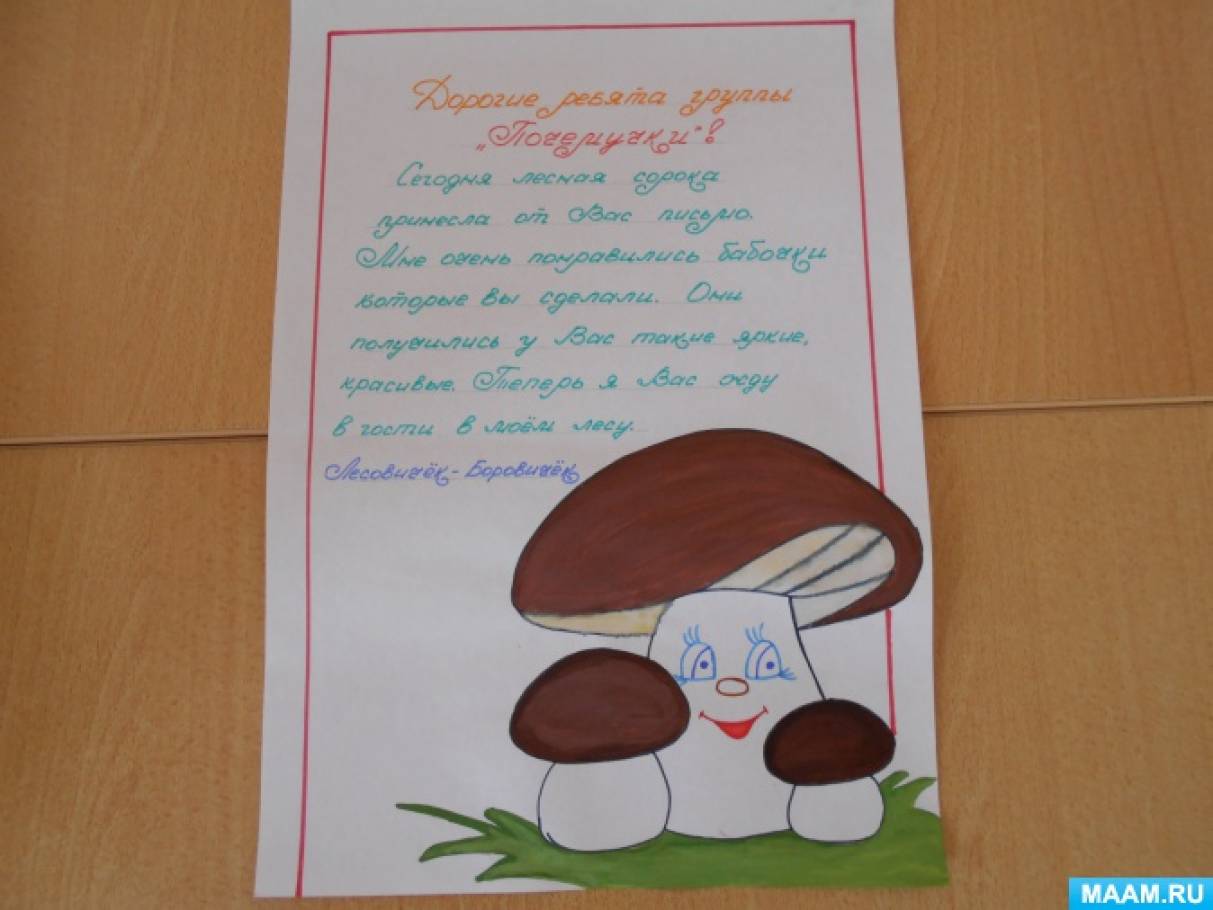 Дорогие ребята группы
„Почемучки"!
Сегодня лесная сорока
принесла от Вас письмо.
Мне очень понравились бабочки
которые вы сделали. Они
получились у Вас такие яркие,
красивые. Теперь я Вас жду
в гости в моём лесу.
Лесовичёк-Боровичёк
MAAM.RU